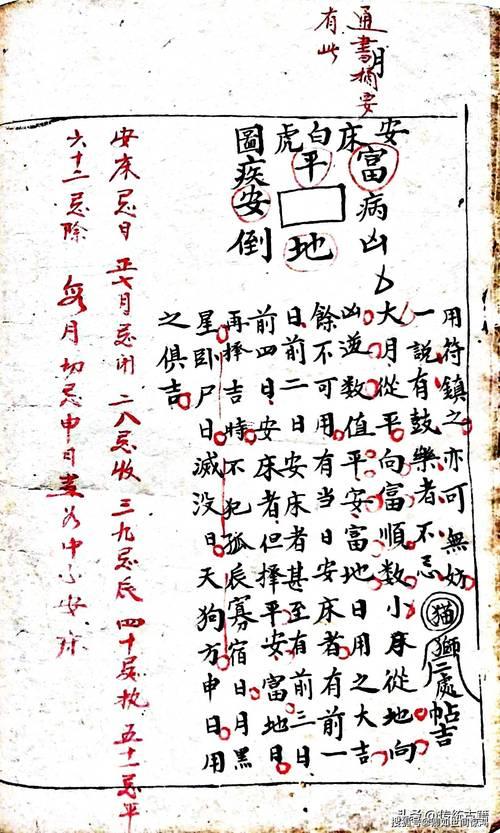 通書摘要
有此
月
安床白虎圖
富病凶
平
地
疾安倒
用符鎮之亦可無妨
一說有鼓樂者不忌
猫獅二處帖吉
大月從平向富順數小月從地向
凶逆數值平安富地日用之大吉
餘不可用有當日安床者有前一
日前二日安床者甚至有前三日
前四日安床者但擇平安富地日
再擇吉時不犯孤辰寡宿日月黑
星卧尸日滅没日天狗方申日用
之俱吉
安床忌日 正七月忌闭 二八忌收 三九忌辰 四十忌执 五十一忌平
六十二忌除 每月切忌申日 中不安床
头条@传统古籍
搜狐号@